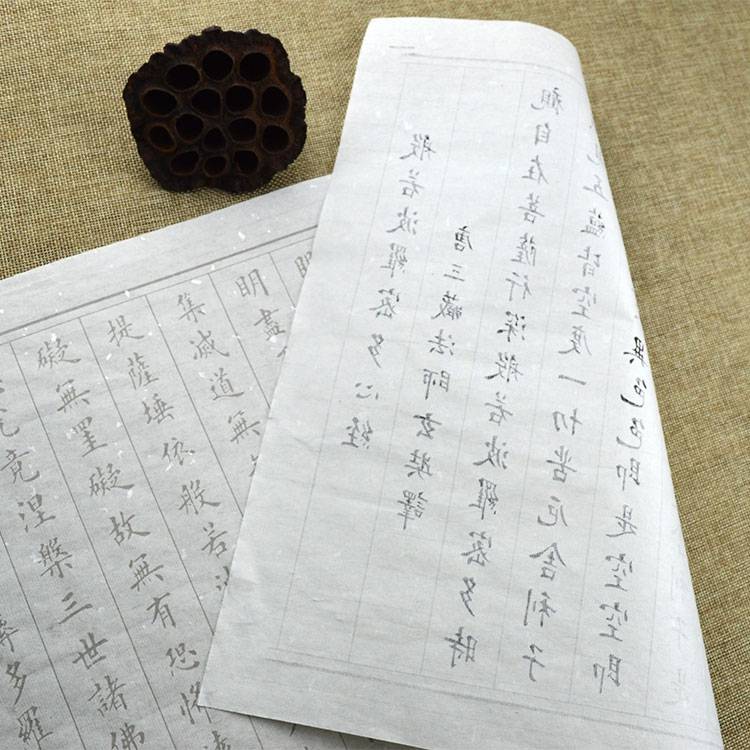 般若波羅密多心經
唐三藏法師玄奘譯
觀自在菩薩行深般若波羅密多時
見五蘊皆空度一切苦厄舍利子
異色色即是空空即
眼
明盡
集滅道無
提薩埵依般若波
礙無罣礙故無有恐怖
究竟涅槃三世諸佛
多羅